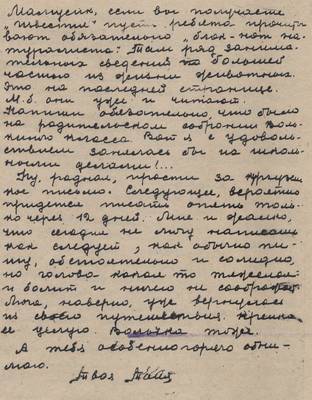 Мамусик, если вы получаете
"Известия" пусть ребята прочиты-
вают обязательно "блок-нот на-
туралиста". Там ряд занима-
тельных сведений по большей
частью из жизни животных.
Это на последней странице.
М.б. они уже и читают.
Напиши обязательно, что было
на родительском собрании Воль-
киного класса. Вот я с удоволь-
ствием занялась бы их школь-
ными делами!...
Ну, родная, прости за
ное письмо. Следующее, вероятно
придется писать опять толь-
ко через 12 дней. Мне и жалко,
что сегодня не могу написать
как следует, как обычно пи-
шу, обстоятельно и солидно,
но голова какая то тяжелая
и болит и ничего не соображает.
наверно, уже вернулась
из своего путешествия. Крепко
ее целую. Волочка тоже.
А тебя особенно горячо обни-
маю.
Твоя Тата